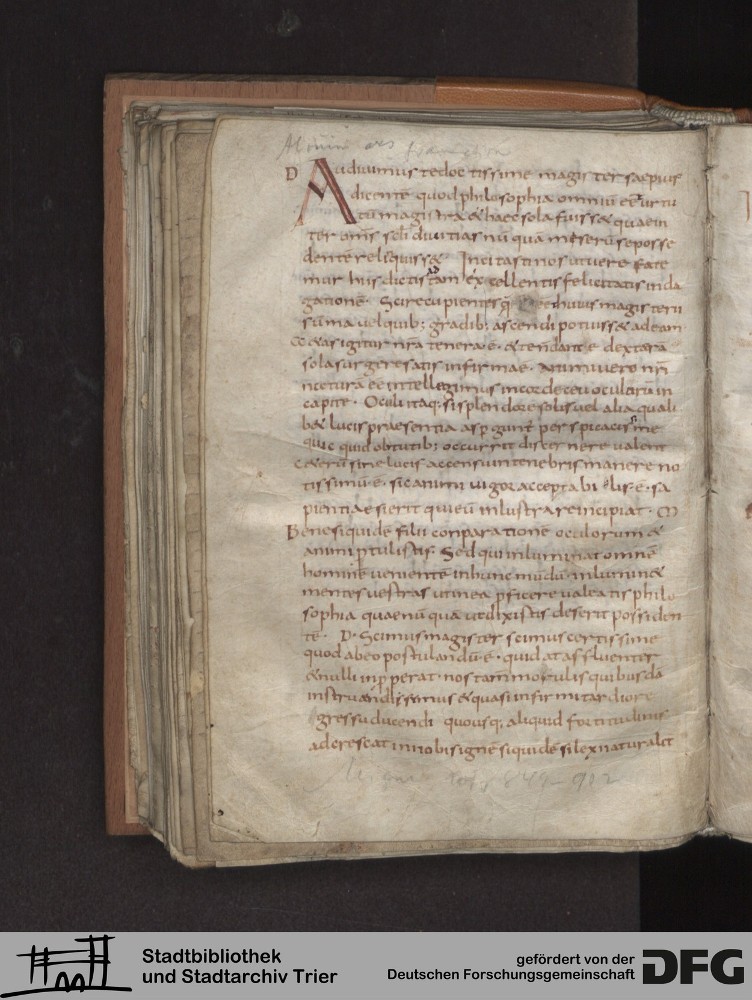 D Audivimus te doctissime magister saepius
dicente quod philosophia omniū eē virtu
tū magistra & haec sola fuiss& quae in
ter omīs scli divitias nū quā miserū se posse
dentē reliquiss&. Incitasti nos ut vere fate
mur huis dictis tam excellentis felicitatis inda
gationē. Scire cupientes huius magisterii
sūma vel quib; gradib; ascendi potuiss& ad eam
&as igitur nrā tenera ē & tendant ē dexterā
sola surgere satis infirma ē. Animi vero nrī
naturā eē intellegimus in corde ceu oculorū in
capite. Oculi itaq; si splendore solis vel alia quali
b& lucis praesentia aspgunt̄ perspicacissime
quic quid obtutib; occurrit discernere valent
c&erū sine lucis accensu in tenebris manere no
tissimū ē. sic animi vigor acceptabilis ē. sa
pientiae si erit qui eū inlustrare incipiat. M
Bene si quidē filii conparationē oculorum &
animi ptulistis. Sed qui inluminat omnē
hominē venientē in hunc mūdū inlumin&
mentes vestras ut in ea pficere valeatis philo
sophia quae nū quā ut dixistis deserit possiden
tē. D. Scimus magister scimus certissime
quod ab eo postulandū ē. qui dat affluenter
& nulli inpperat. nos tam morulis quibusdā
instruendi simus & quasi infirmi tardiore
gressu ducendi quousq; aliquid fortitudinis
adcrescat in nobis ignē siquidē silex naturalit
Migne 101, 849-902
Stadtbibliothek
und Stadtarchiv Trier
gefördert von der
Deutschen Forschungsgemeinschaft
DFG